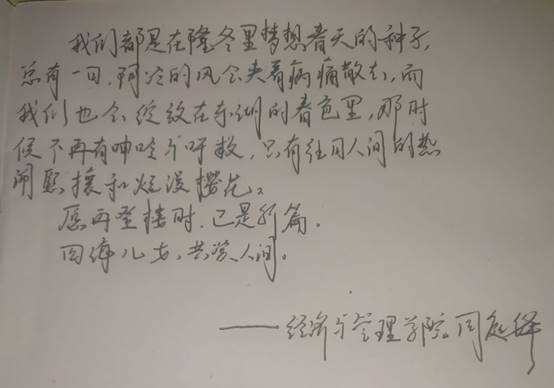 我们都是在隆冬里梦想春天的种子,
总有一日,阴冷的风会夹着病痛散去,而
我们也会绽放在东湖的春色里,那时
候不再有呻吟与呼救,只有往日人间的热
闹熙攘和烂漫樱花。
愿再登楼时,已是新篇。
四海儿女,共赏人间。
——经济与管理学院 周